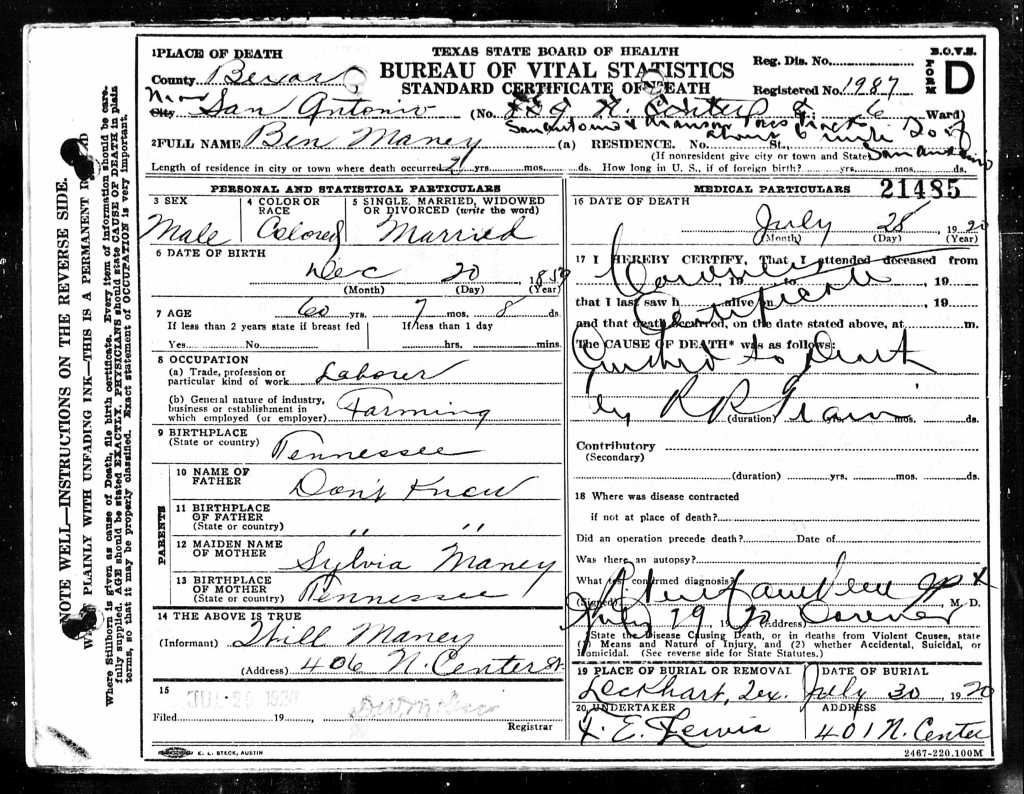 1 PLACE OF DEATH
TEXAS STATE BOARD OF HEALTH
BUREAU OF VITAL STATISTICS
STANDARD CERTIFICATE OF DEATH
B.O.V.S.
FORM D
Reg. Dis. No.
County Bexar
Registered No. 1987
Near
City San Antonio (No. N. Center St. 6 Ward)
San Antonio & Aransas Pass
about 6 mile So of
San Antonio
2 FULL NAME Ben Maney (a) RESIDENCE. No. St.,
(If nonresident give city or town and State)
Length of residence in city or town where death occurred yrs. mos. ds. How long in U. S., if of foreign birth? yrs. mos. ds.
21485
PERSONAL AND STATISTICAL PARTICULARS
3 SEX
Male
4 COLOR OR RACE
Colored
5 SINGLE, MARRIED, WIDOWED OR DIVORCED (write the word)
Married
6 DATE OF BIRTH
Dec 20 1859
(Month) (Day) (Year)
7 AGE 60 yrs. 7 mos. 8 ds.
If less than 2 years state if breast fed If less than 1 day
Yes No hrs. mins.
8 OCCUPATION
(a) Trade, profession or
particular kind of work Labourer
(b) General nature of industry,
business or establishment in
which employed (or employer) Farming
9 BIRTHPLACE
(State or country) Tennessee
PARENTS
10 NAME OF FATHER Don't Know
11 BIRTHPLACE OF FATHER (State or country) " "
12 MAIDEN NAME OF MOTHER Sylvia Maney
13 BIRTHPLACE OF MOTHER (State or country) Tennessee
14 THE ABOVE IS TRUE
(Informant) Will Maney
(Address) 406 N. Center St.
15
Filed 19 ,
Registrar
MEDICAL PARTICULARS
16 DATE OF DEATH
July 28 1920
(Month) (Day) (Year)
17 I HEREBY CERTIFY, That I attended deceased from
, 19 to , 19
Coroner's
Certificate
that I last saw h alive on , 19
and that death occurred, on the date stated above, at m.
The CAUSE OF DEATH* was as follows:
Crushed to Death
by R R Train
(duration) yrs. mos. ds.
Contributory
(Secondary)
(duration) yrs. mos. ds.
18 Where was disease contracted
if not at place of death?
Did an operation precede death? Date of
Was there an autopsy?
What test confirmed diagnosis?
(Signed) Campbell M. D.
July 29 1920 (Address) Coroner
*State the Disease Causing Death, or in deaths from Violent Causes, state
(1) Means and Nature of Injury, and (2) whether Accidental, Suicidal, or
Homicidal. (See reverse side for State Statutes.)
19 PLACE OF BURIAL OR REMOVAL DATE OF BURIAL
Lockhart, Tex. July 30 1920
20 UNDERTAKER ADDRESS
F. E. Lewis 401 N. Center
E. L. STECK, AUSTIN
2467-220.100M
NOTE WELL—INSTRUCTIONS ON THE REVERSE SIDE.
PLAINLY WITH UNFADING INK—THIS IS A PERMANENT
Where Stillborn is given as cause of Death, file birth certificate. Every item of information should be care-
fully supplied. AGE should be stated EXACTLY. PHYSICIANS should state CAUSE OF DEATH in plain
terms, so that it may be properly classified. Exact statement of OCCUPATION is very important.